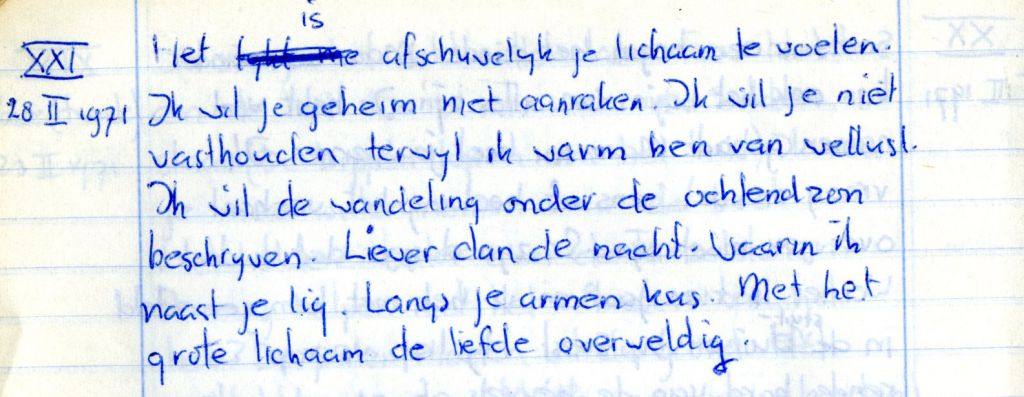 is
XXI Het lykt me afschuwelyk je lichaam te voelen.
28 II 1971 Ik wil je geheim niet aanraken. Ik wil je niet
vasthouden terwyl ik warm ben van wellust.
Ik wil de wandeling onder de ochtendzon
beschryven. Liever dan de nacht. Waarin ik
naast je lig. Langs je armen kus. Met het
grote lichaam de liefde overweldig.